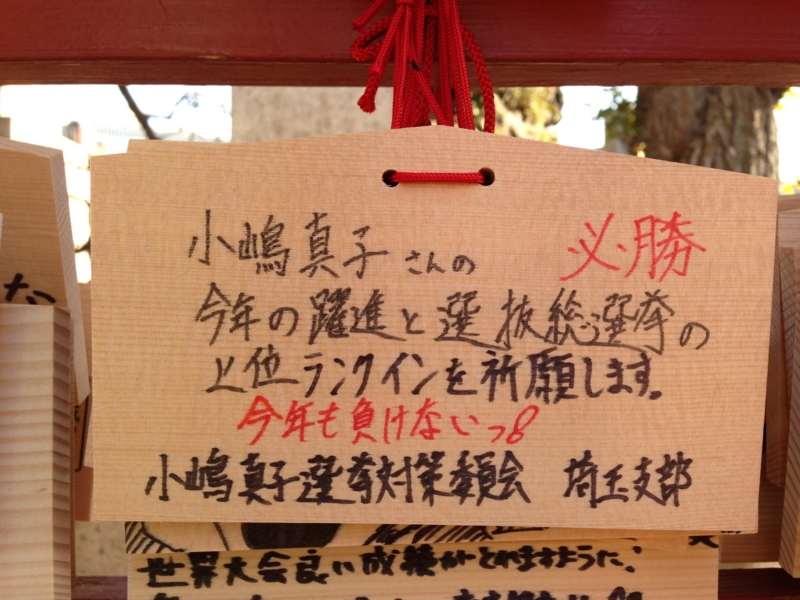 小嶋真子さんの 必勝
今年の躍進と選抜総選挙の
上位ランクインを祈願します。
今年も負けないっ8
小嶋真子選挙対策委員会 埼玉支部
世界大会良い成績がとれますように。
な